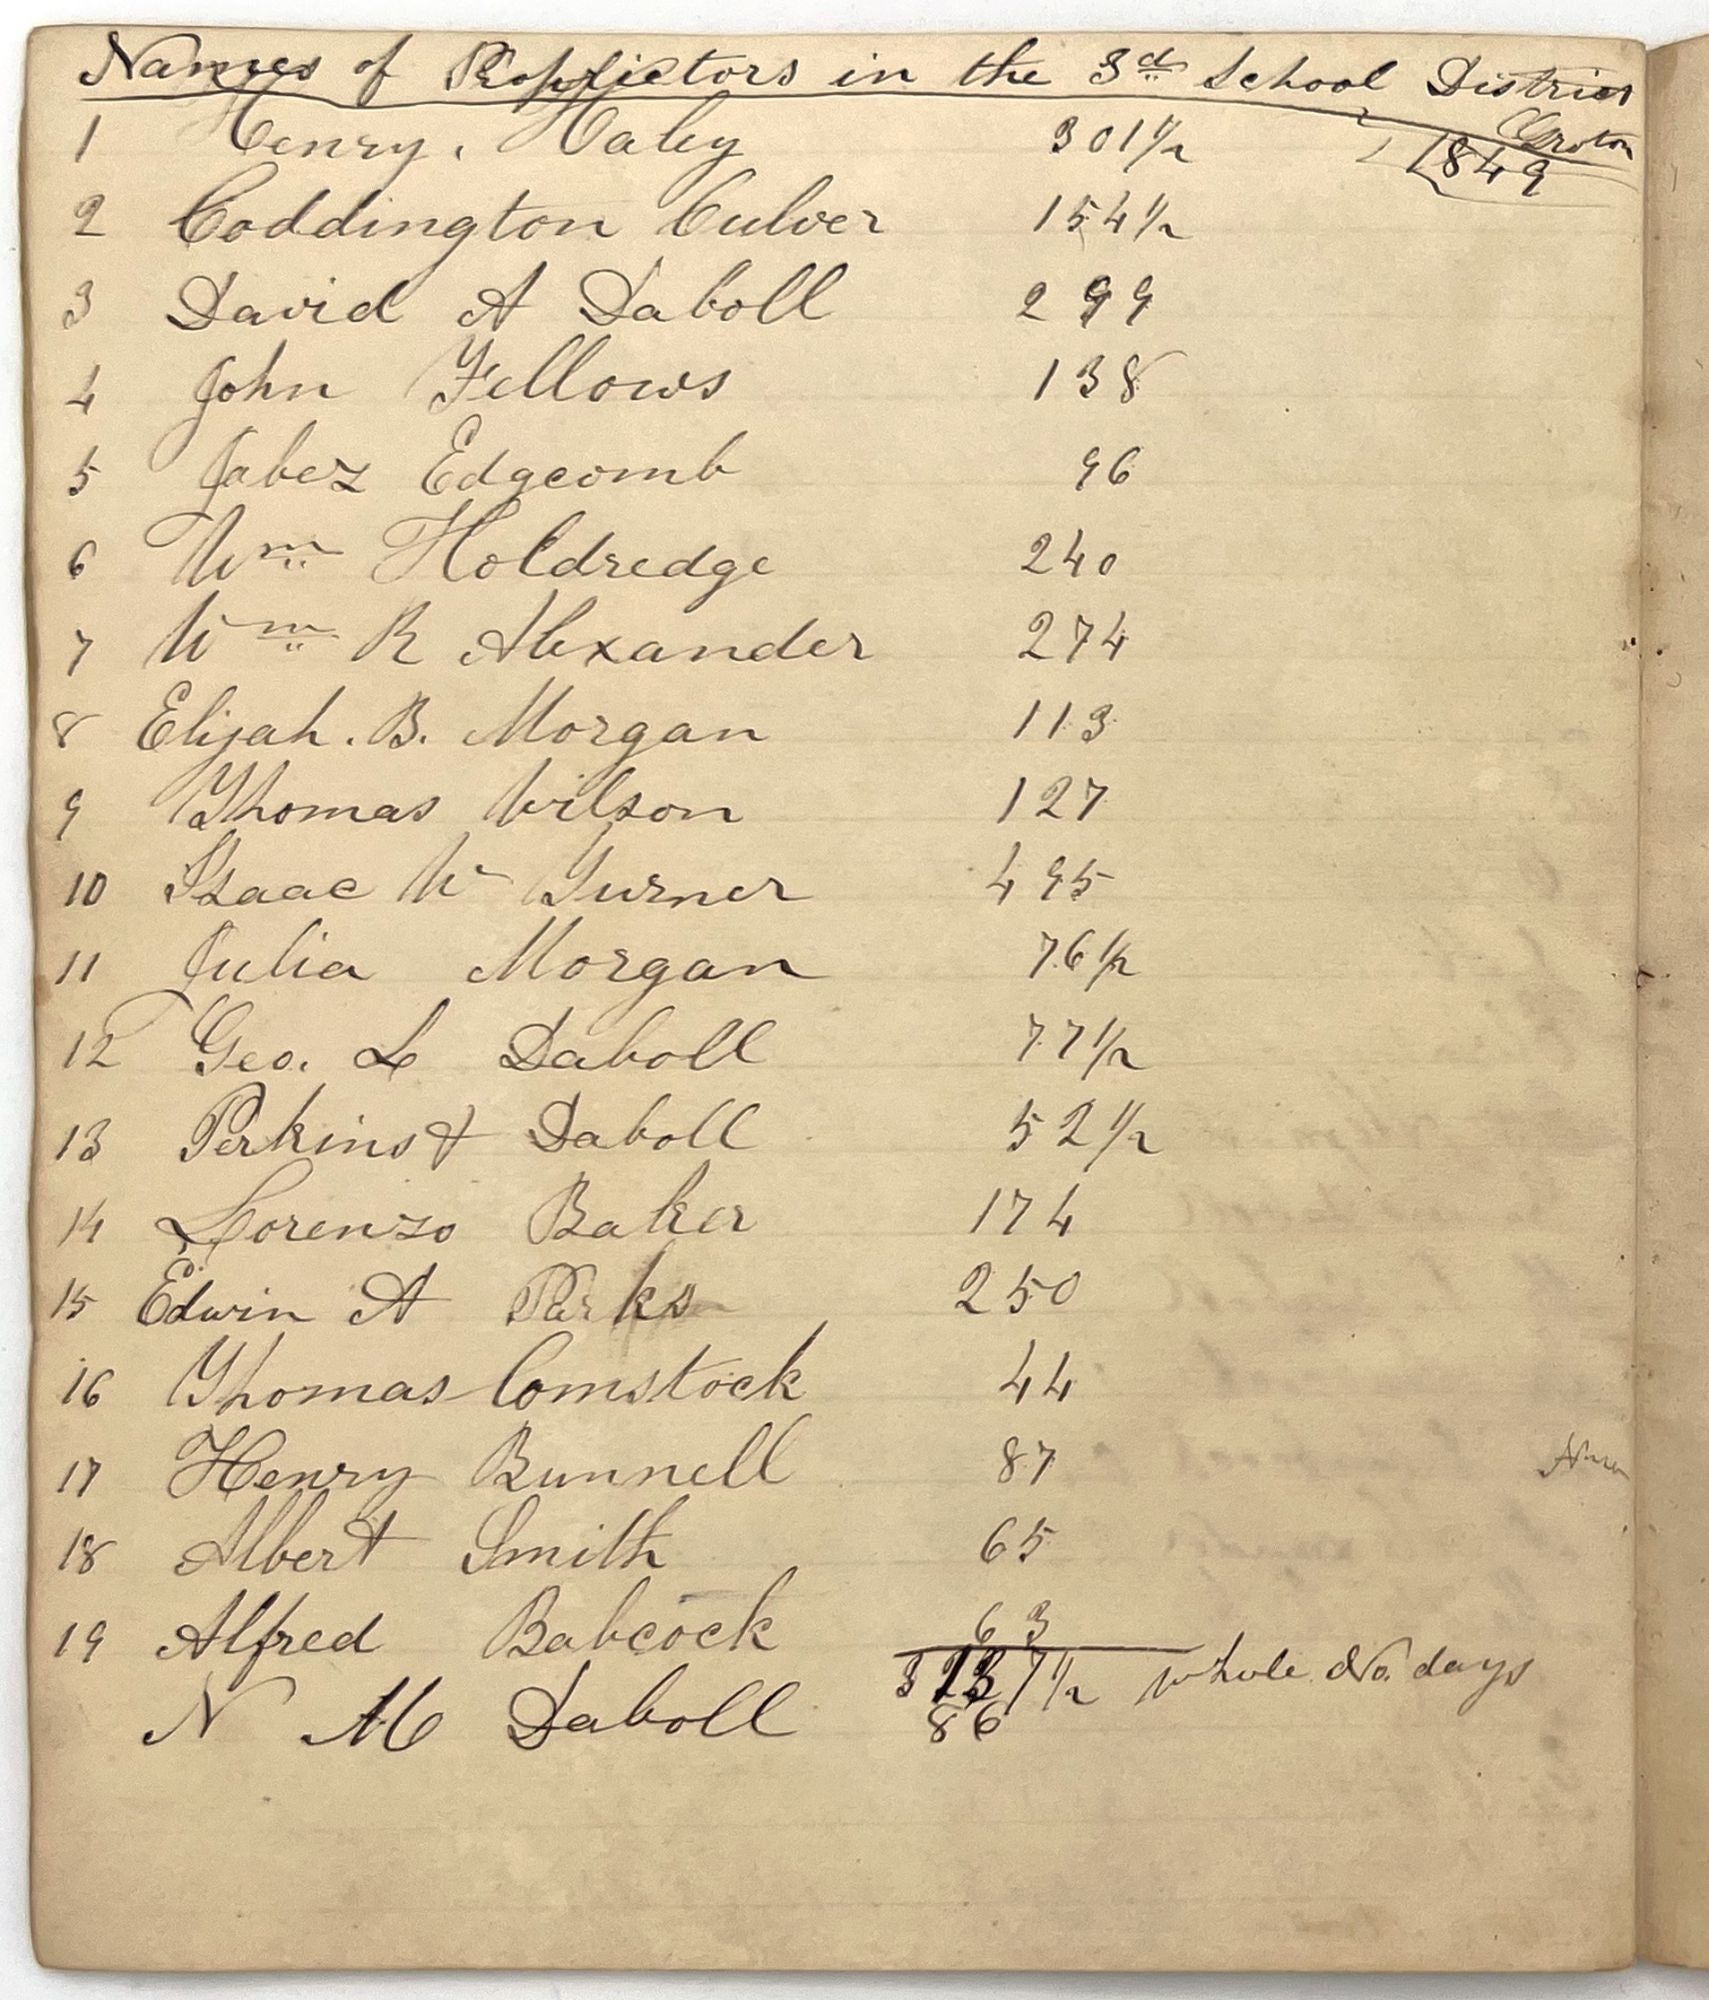 Names of Proprietors in the 3d School District
Groton
1849
1 Henry. Haley 301 1/2
2 Coddington Culver 154 1/2
3 David A Daboll 299
4 John Fellows 138
5 Jabez Edgcomb 96
6 Wm Holdredge 240
7 Wm R Alexander 274
8 Elijah. B. Morgan 113
9 Thomas Wilson 127
10 Isaac W Turner 495
11 Julia Morgan 76 1/2
12 Geo. L Daboll 77 1/2
13 Perkins & Daboll 52 1/2
14 Lorenzo Baker 174
15 Edwin A Parks 250
16 Thomas Comstock 44
17 Henry Bunnell 87
18 Albert Smith 65
19 Alfred Babcock 63
whole No. days
N M Daboll 86